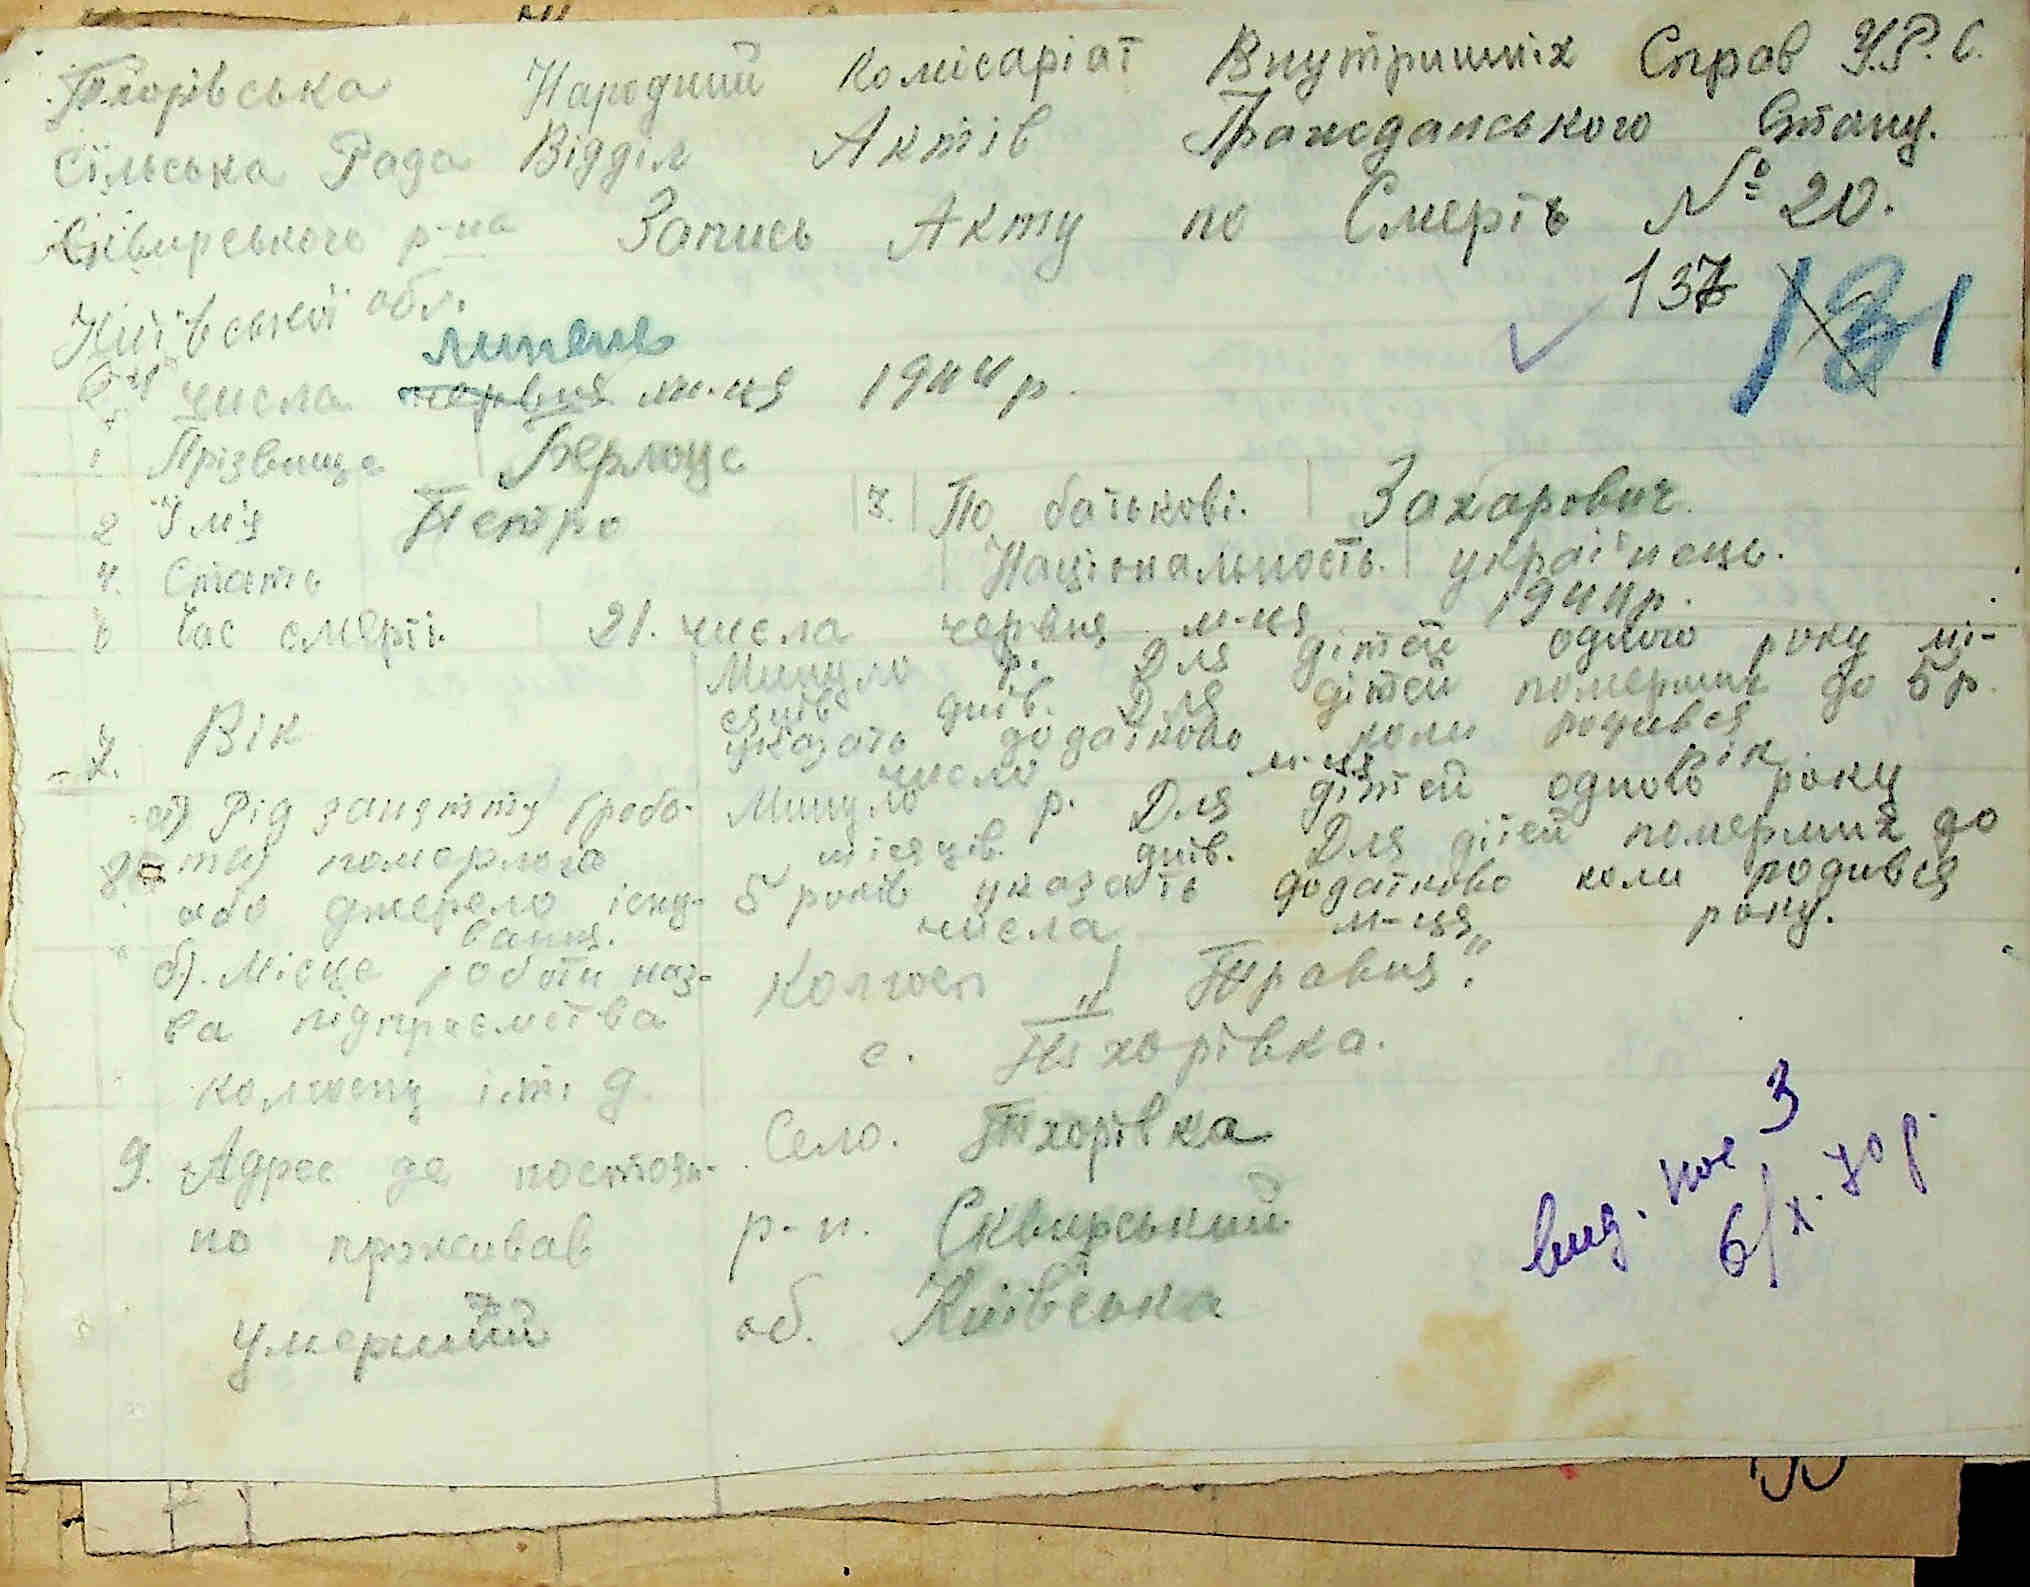 Тхорівська Народний Комісаріат Внутришніх Справ У.Р.С.
Сільська Рада Відділ Актів Гражданського Стану.
Сквирського р-на Запись Акту по Смерть № 20.
Київської обл.
137 131
липень
числа червня м-ця 1944 р.
1 Прізвище Берлоус
2 Ім'я Петро 3. По батькові. Захарович.
4. Стать Національность. українець.
6 Час смерті. 21. числа червня м-ця 1944р.
Минуло р. Для дітей одного року мі-
сяців днів. Для дітей померших до 5 р.
7. Вік указать додатково коли родився
числа м-ця рік.
а) Рід заняття (робо- Минуло р. Для дітей одного року
8 ти) померлого місяців. днів. Для дітей померлих до
або джерело існу- 5 років указать додатково коли родився
вання. числа м-ця року.
б). Місце роботи наз- Колгосп "1 Травня".
ва підприємства с. Тхорівка.
колгоспу і т. д.
9. Адрес де постоян- Село. Тхорівка
но проживав р-н. Сквирський
умерший об. Київська
вид. пов 3
6/X. 70 р.